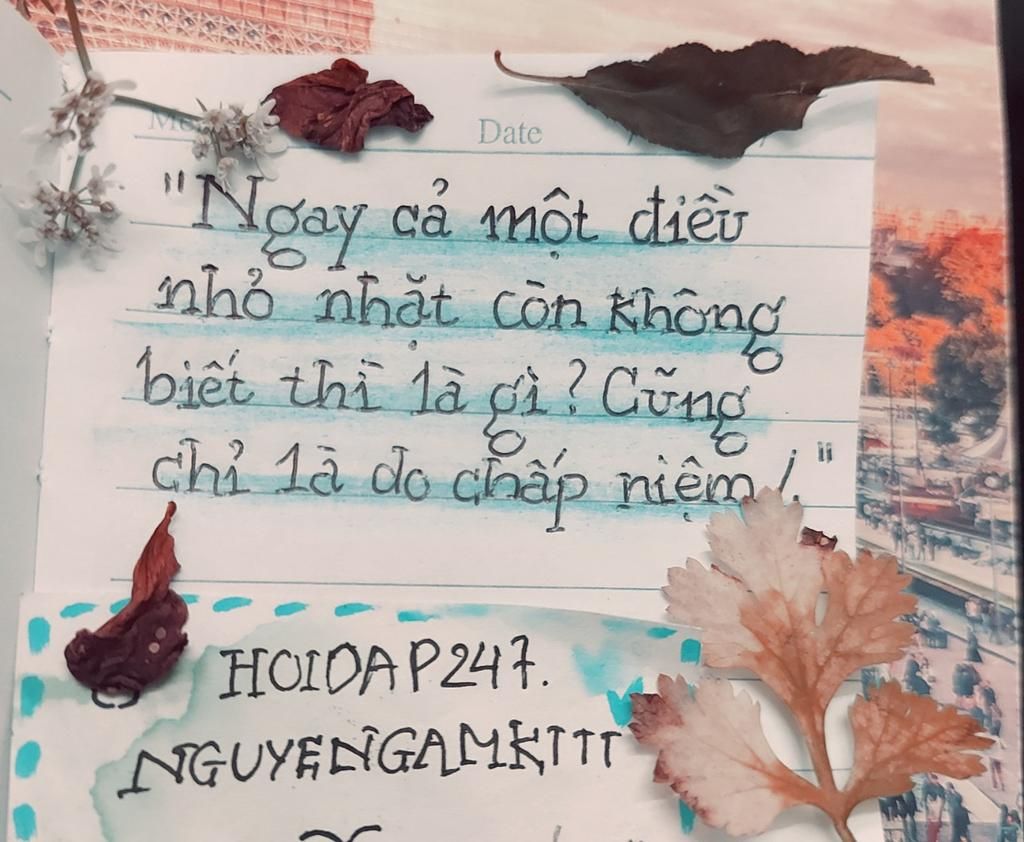 Date
"Ngay cả một điều
nhỏ nhặt còn không
biết thì là gì? Cũng
chỉ là do chấp niệm!."
HOIDAP247.
NGUYENGAMKTTT